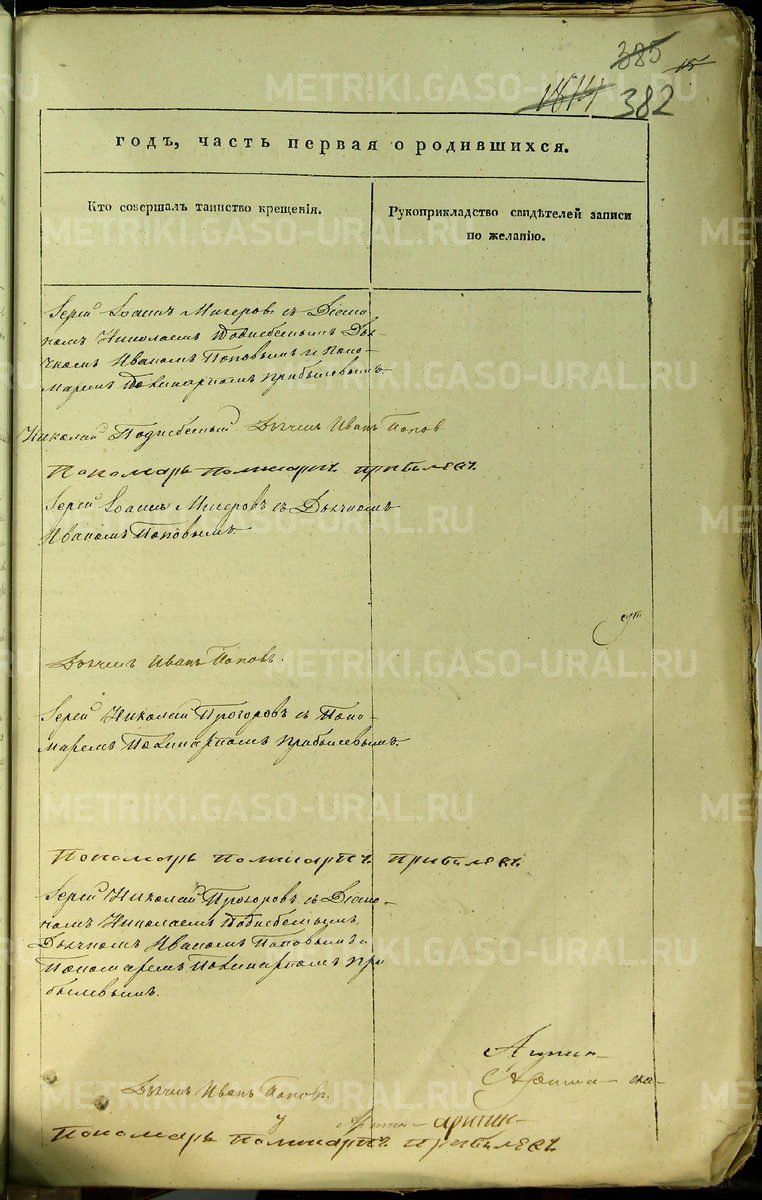 385
15
1814 382
годъ, часть первая о родившихся.
Кто совершалъ таинство крещенія.
Рукоприкладство свидѣтелей записи
по желанію.
Іерей Іоаннъ Мигеровъ съ Діако-
номъ Николаемъ Поднебеснымъ Дья-
чкомъ Иваномъ Поповымъ и Поно-
маремъ Поликарпомъ Прибылевымъ.
Николай Поднебесный Дьячекъ Иванъ Попов
Пономарь Поликарпъ Прибылевъ
Іерей Іоаннъ Мигеровъ съ Дьячкомъ
Иваномъ Поповымъ.
Дьячекъ Иванъ Поповъ.
Іерей Николай Прогоровъ съ Поно-
маремъ Поликарпомъ Прибылевымъ.
Пономарь Поликарпъ Прибылевъ
Іерей Николай Прогоровъ съ Діако-
номъ Николаемъ Поднебеснымъ,
Дьячкомъ Иваномъ Поповымъ и
Пономаремъ Поликарпомъ При
былевымъ.
Дьячекъ Иванъ Поповъ.
Пономарь Поликарпъ Прибылевъ
METRIKI.GASO-URAL.RU